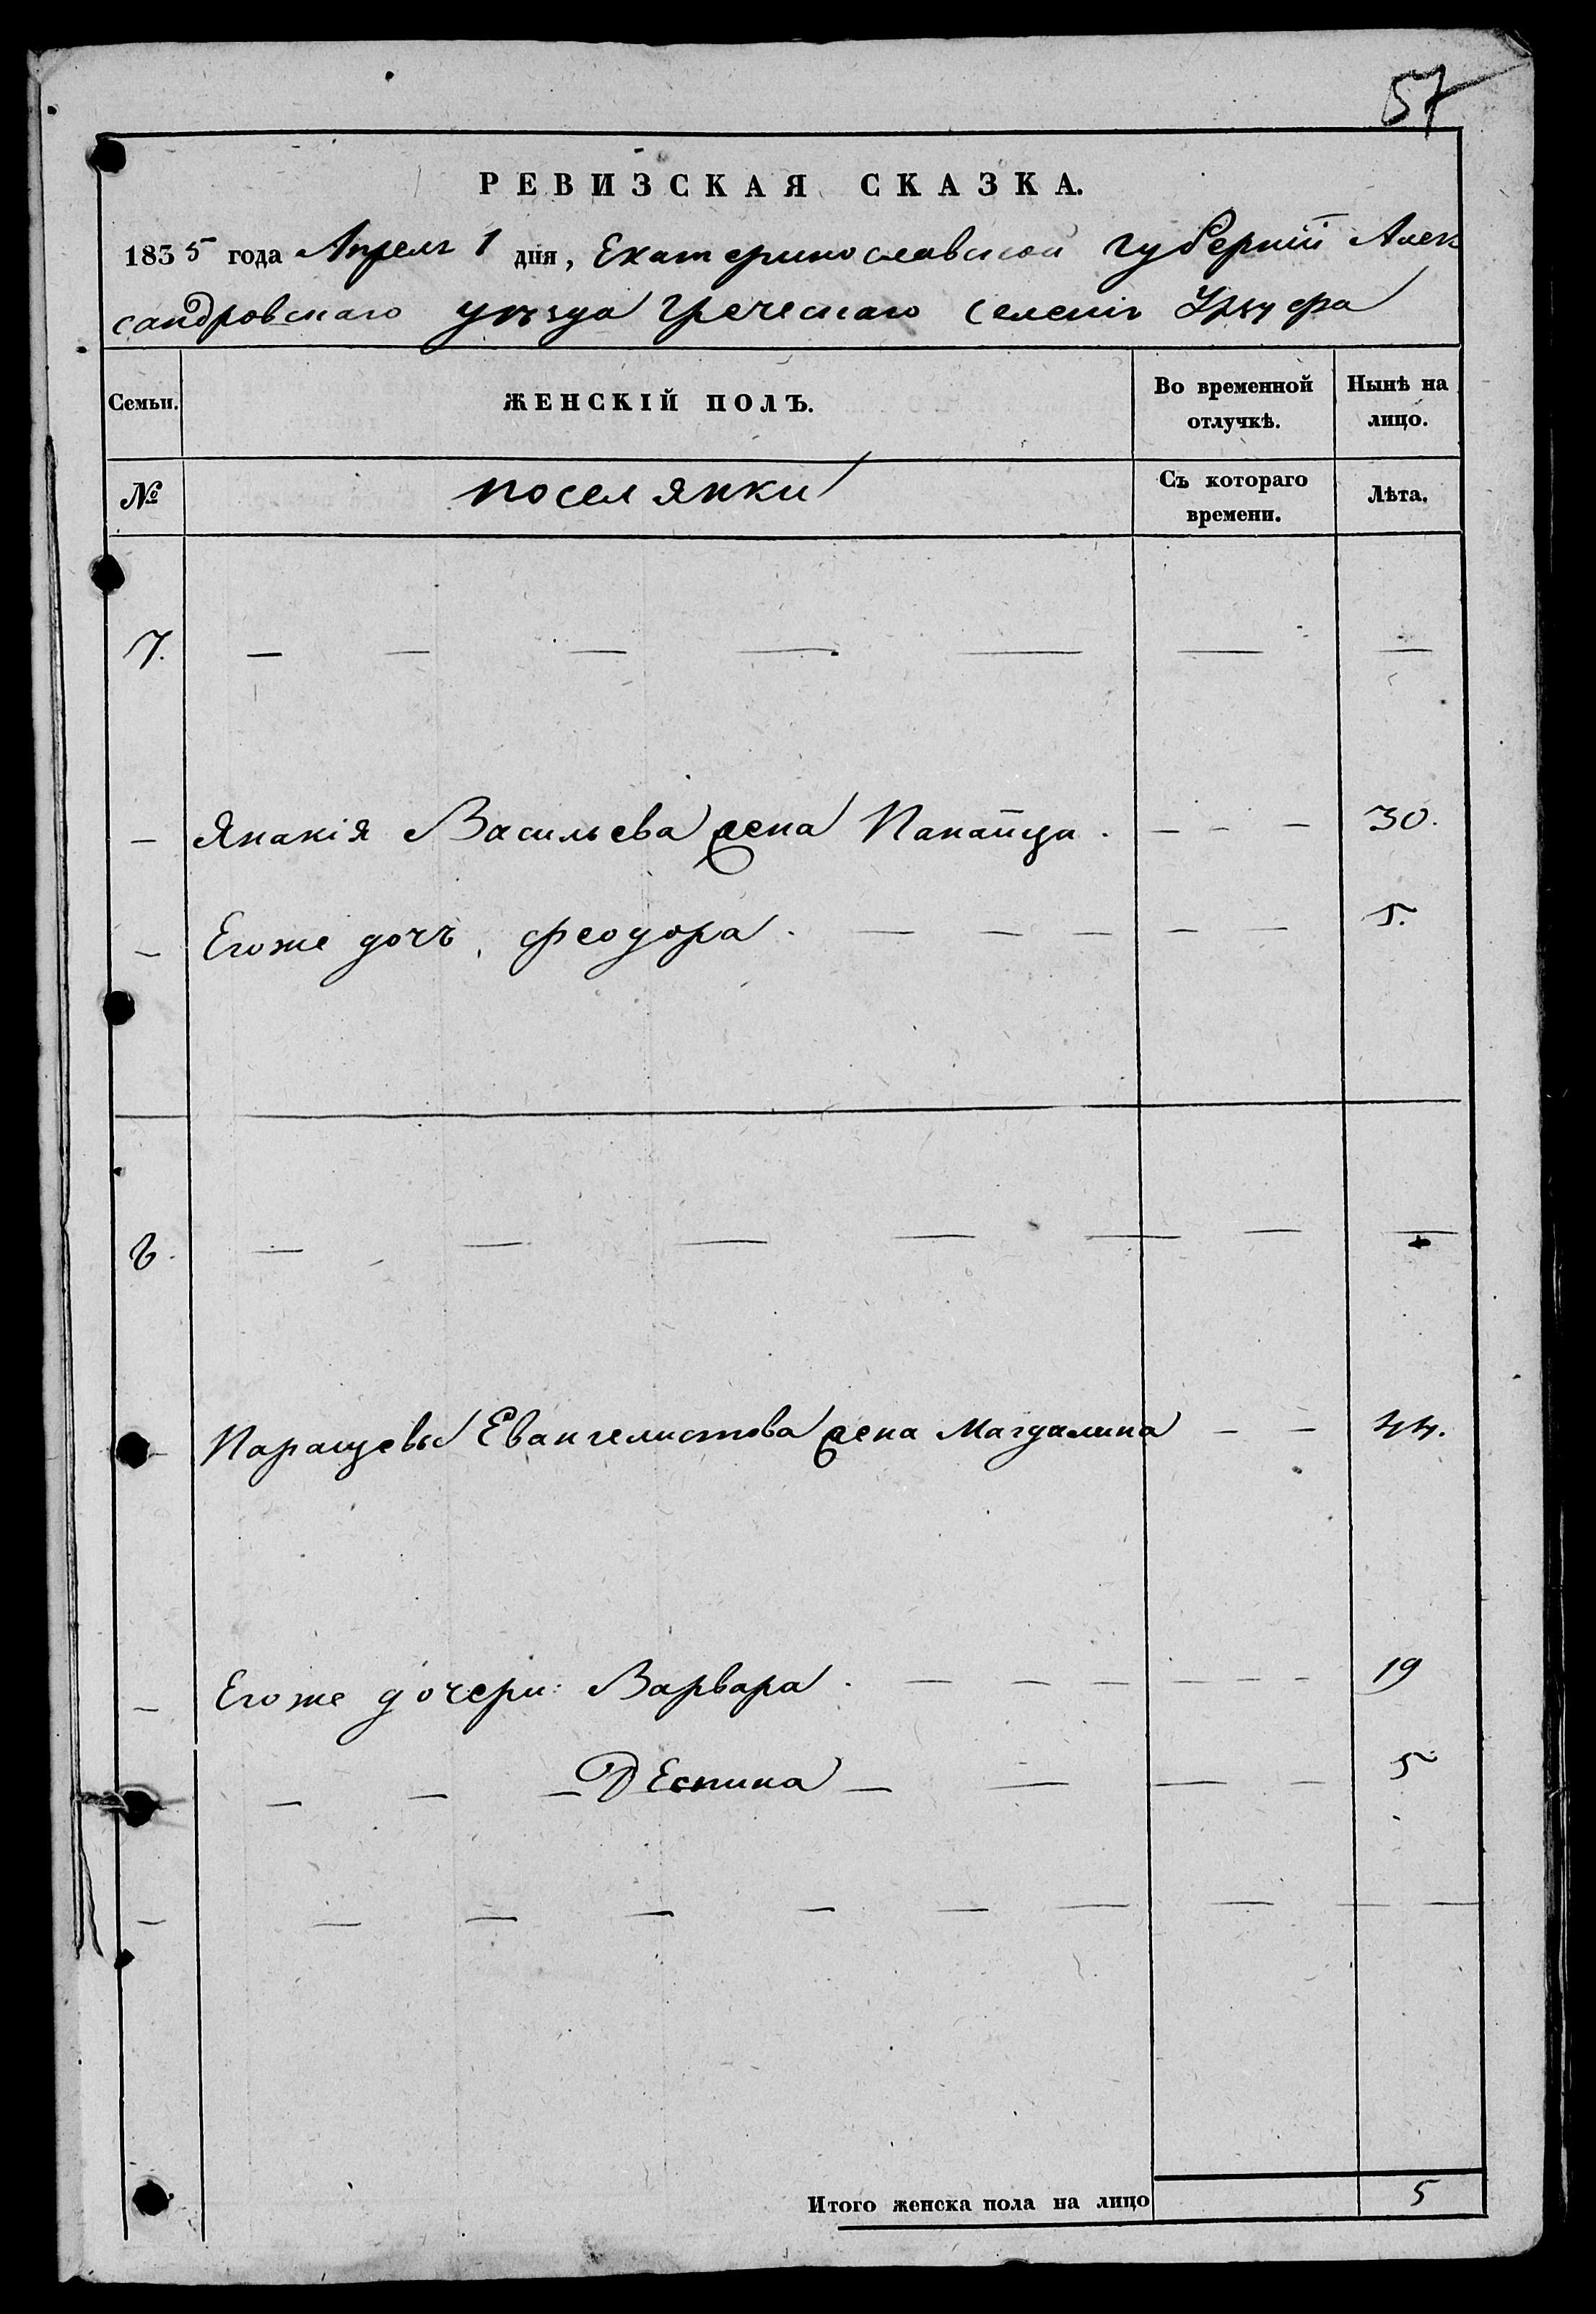 57
РЕВИЗСКАЯ СКАЗКА.
1835 года Апреля 1 дня, Екатеринославской губернiи Алек
сандровскаго уѣзда греческаго селенiя Урзуфа
Семьи. ЖЕНСКІЙ ПОЛЪ. Во временной отлучкѣ. Нынѣ на лицо.
№ поселянки Съ котораго времени. Лѣта.
7. — — — — — — —
— Янакiя Васильева жена Панаица . — — — 30.
— Егоже дочь, феодора . — — — — — 5.
8. — — — — — — —
— Паращевы Евангелистова жена Магдалина — — 44.
— Егоже дочери: Варвара . — — — — — — — 19
— — — Деспина — — — — 5
— — — — — — — — — —
Итого женска пола на лицо 5